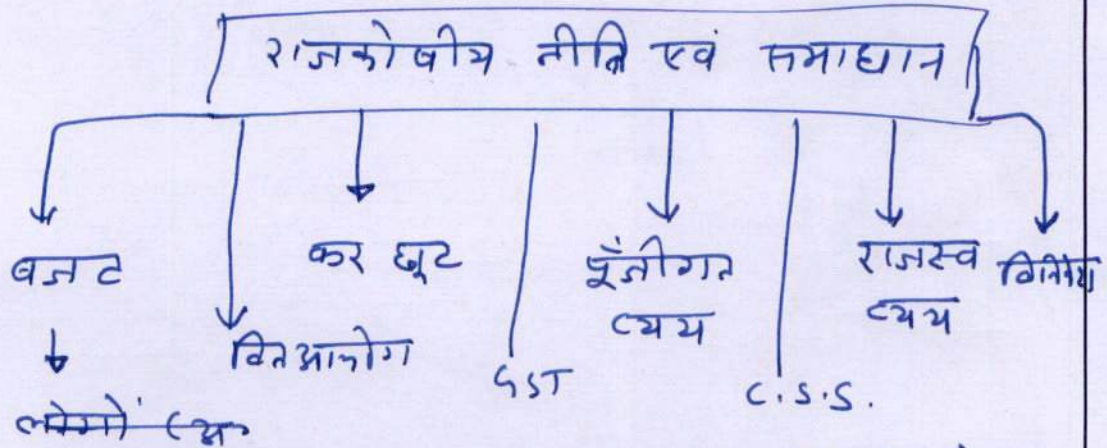 राजकोषीय नीति एवं समाधान
बजट
वित्त आयोग
कर छूट
GST
पूँजीगत
व्यय
C.S.S.
राजस्व
व्यय